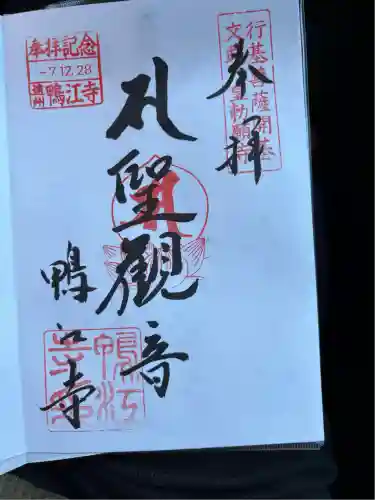 奉拝
行基菩薩開基
文武天皇勅願寺
札聖観音
奉拝記念
-7.12.28
遠州 鴨江寺
鴨江寺
鴨江寺